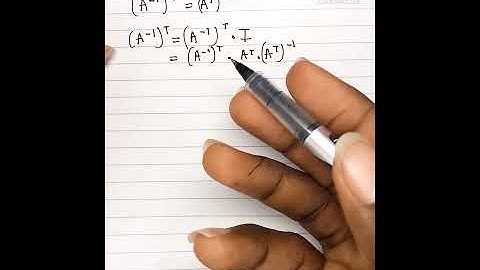 (A⁻¹)ᵀ = (Aᵀ)
(A⁻¹)ᵀ = (A⁻¹)ᵀ · I
= (A⁻¹)ᵀ · Aᵀ · (Aᵀ)⁻¹